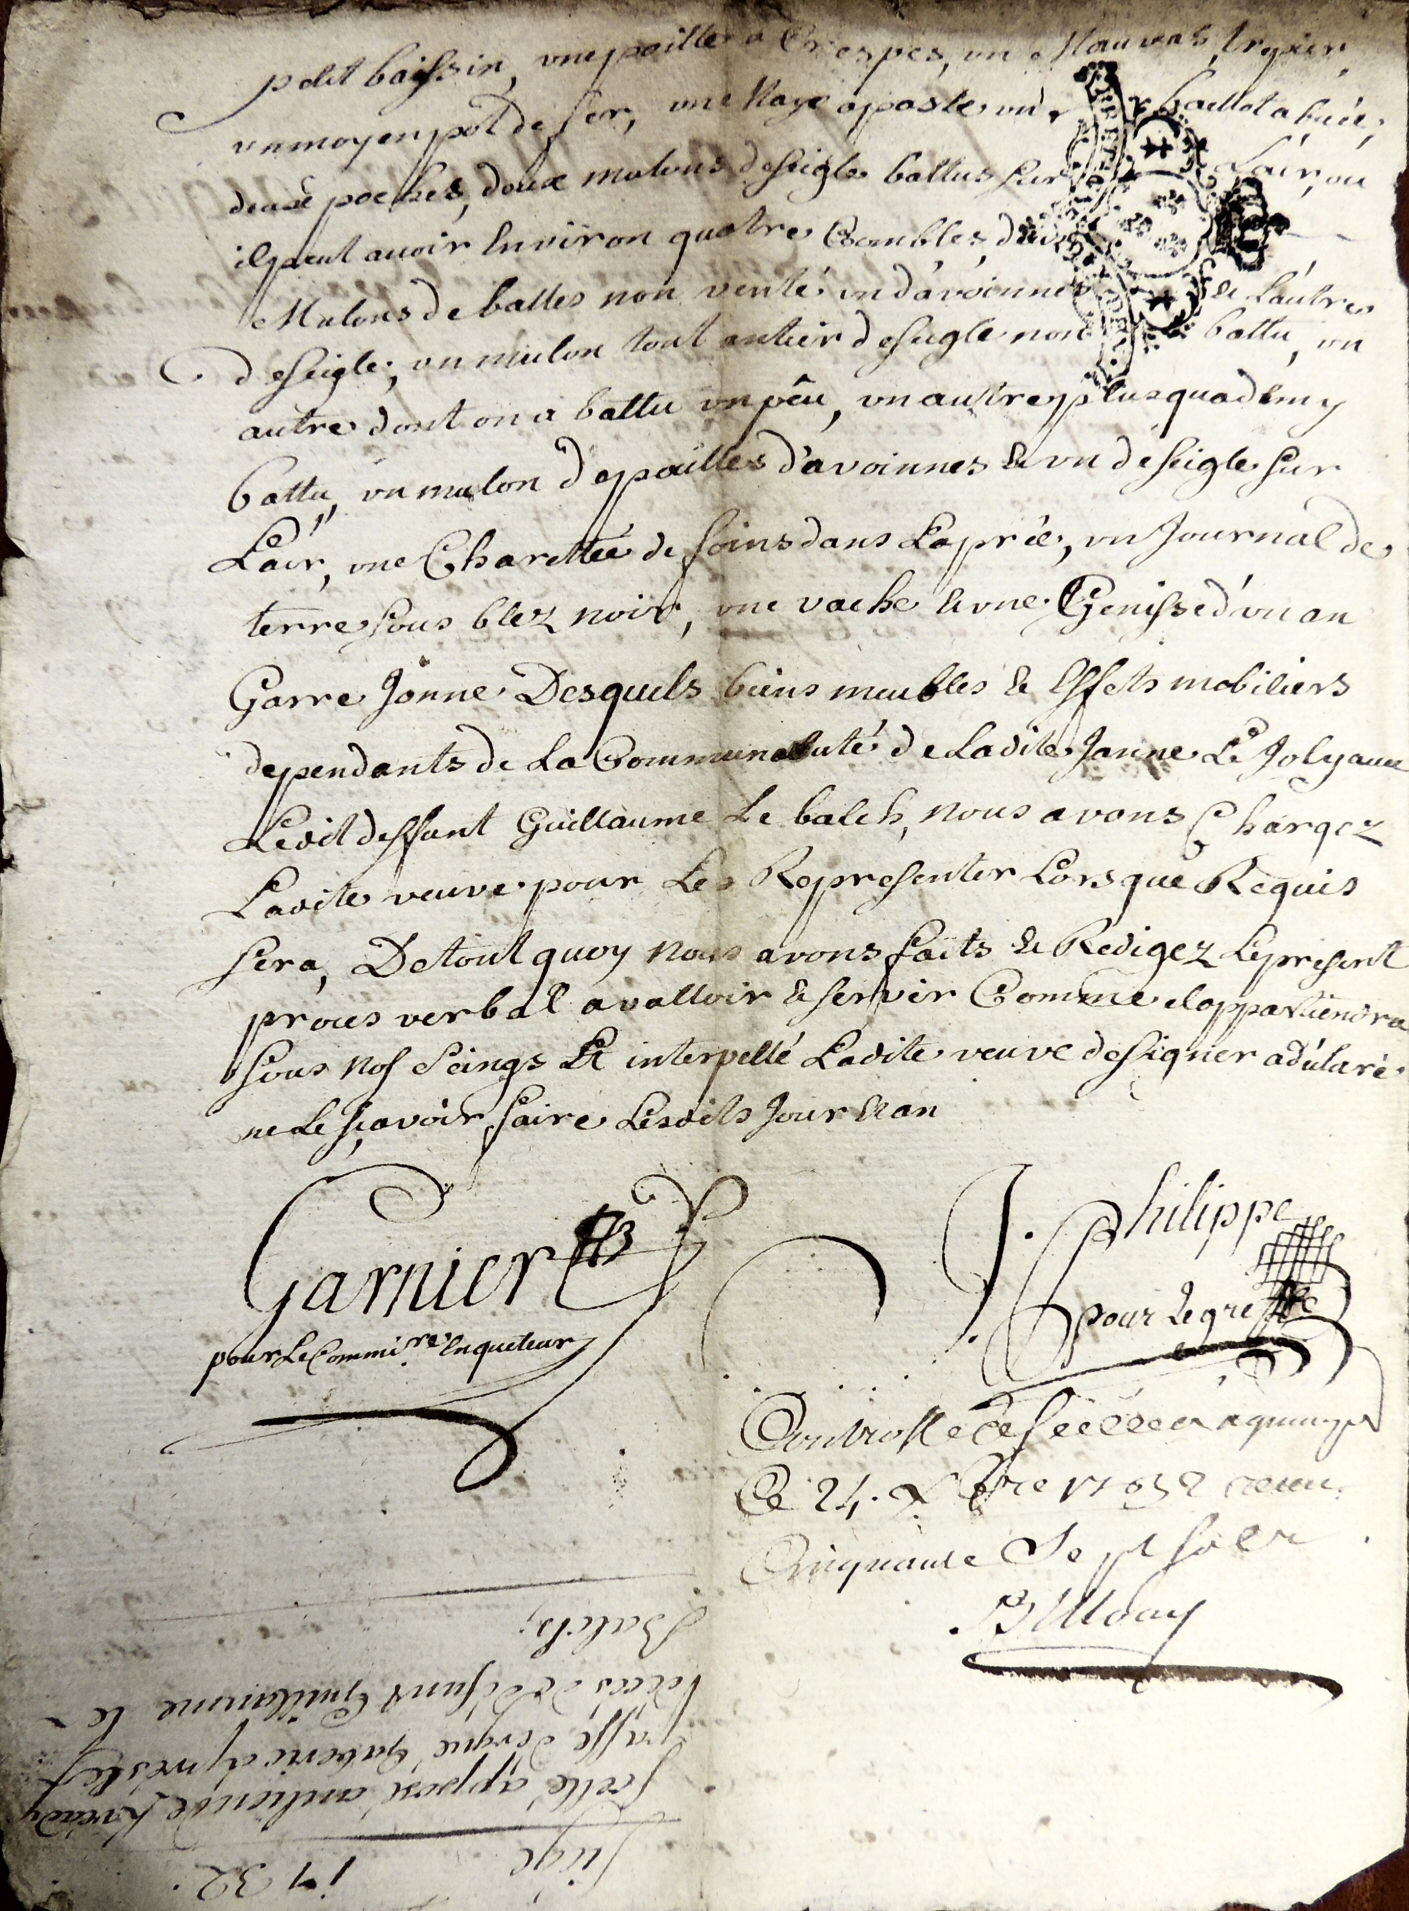 petit baissin, une paille a Crespes, un Mauvais trepier
un moyen pot de fer, une Maye a paste un baillot a buée,
deux poches, deux mulons de seigle battus sur L'air, ou
il peut avoir Environ quatre Combles, deux
Mulons de balles non venté un d'avoinne & L'autre
de seigle, un mulon tout entier de seigle non battu, un
autre dont on a battu un pêu, un autre plus qua demy
battu, un mulon de pailles d'avoinnes & un de seigle sur
L'air, une Charettée de foins dans La prée, un Journal de
terre sous blez noir, une vache & une Genisse d'un an
Garre Jonne Desquels biens meubles & Effets mobiliers
dependants de La Communauté de Ladite Janne Le Joly avec
Ledit deffunt Guillaume Le balch, nous avons Chargez
Ladite veuve pour Les Representer Lors que Requis
sera, De tout quoy nous avons faits & Redigez Le present
proces verbal a valloir & servir Comme il appartiendra
sous nos seings Et interpellé Ladite veuve de signer a déclaré
ne Le sçavoir faire Lesdits Jour & an
Garnier
pour Le Commi.re Enqueteur
J. Philippe
pour Le greffe
Controllé & Scellé a quimper
Ce 24. Xbre 1732 receu
Cinquante Sept sols
1732.
Siege
Scellé apposé au lieu de
passé Ergué Gaberic apres le
deces de defunt Guillaume le
Balch,